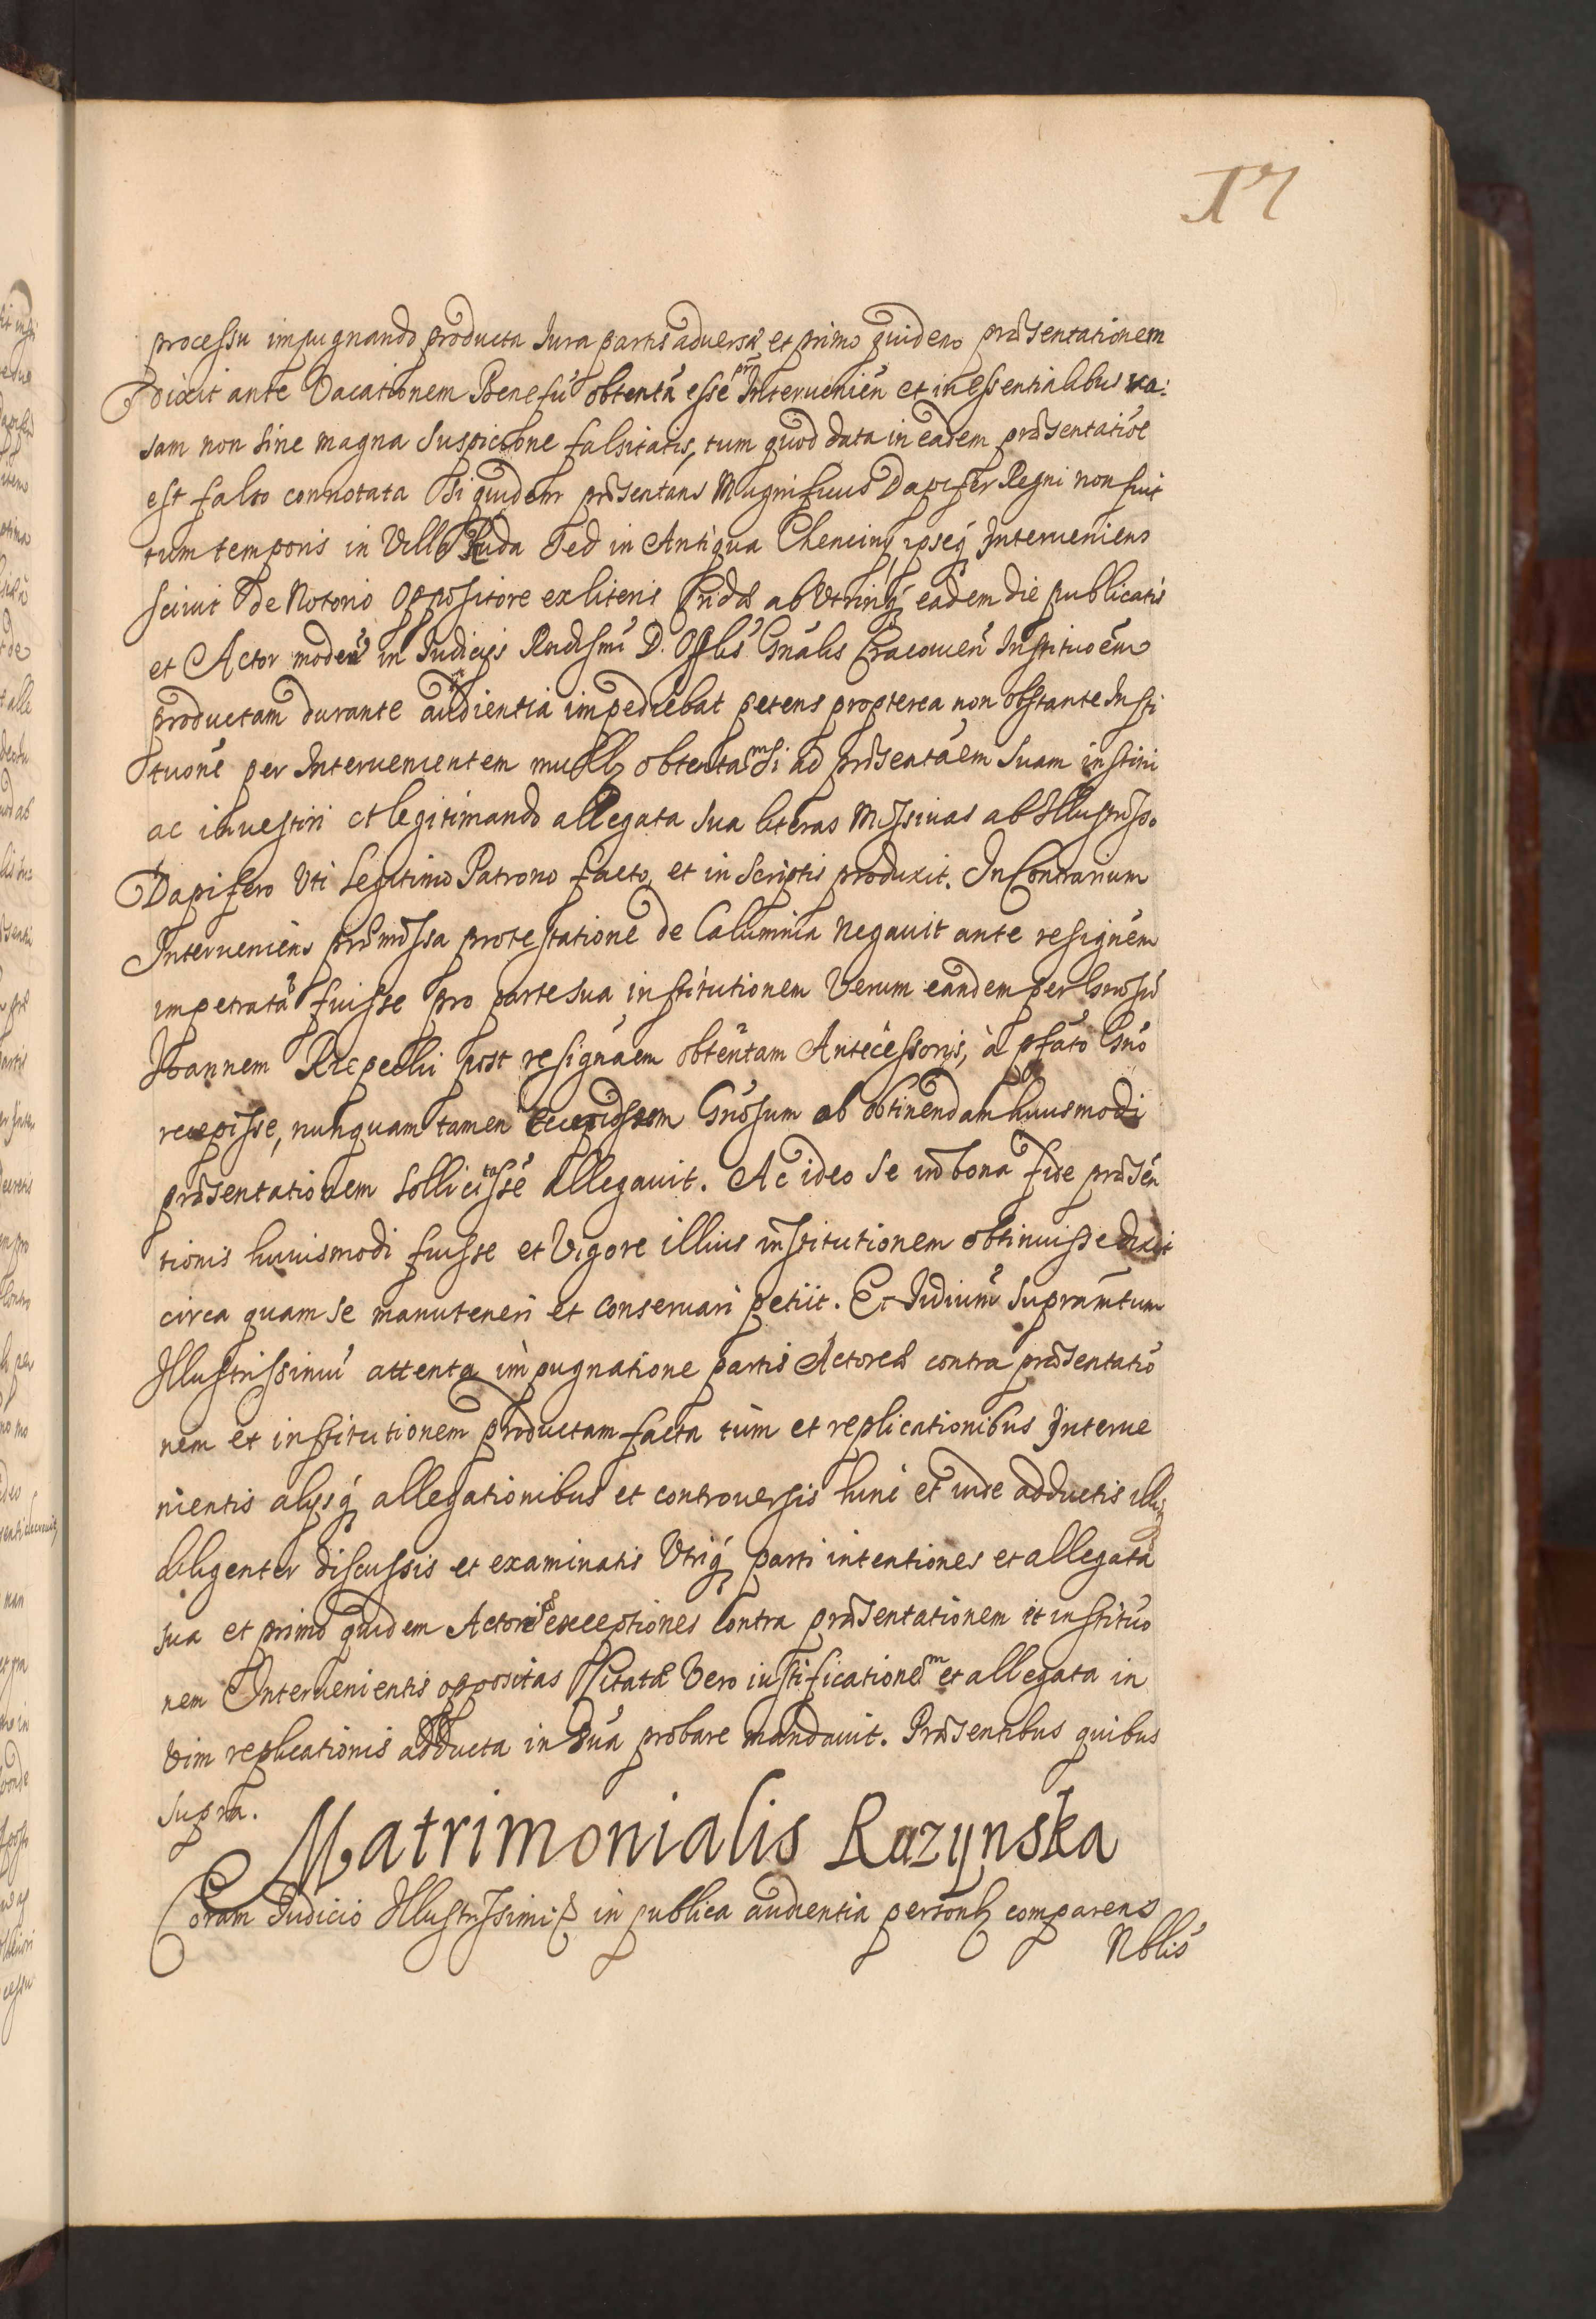 17
processu impugnando producta Jura partis aduersæ et primo quidem præsentationem
dixit ante Vacationem Beneficÿ obtentã esse per Intervenien et in essentialibus ra:
sam non sine magna Suspicione falsitatis, tum quod data in eadem præsentatiõe
est falso connotata Siquidem præsentans Magnificus Dapifer Regni non fuit
tum temporis in Villa Ruda Sed in Antiqua Chenciny, ipseq́ Interueniens
sciuit de Notorio Oppositore ex literis Cridæ ab Utrinq́ eadem die publicatis
et Actor modern̂ in Judicijs Rndissmi D. Offlis Gnâlis Cracouien̂ Institucoẽm
productam durante audientia impediebat petens propterea non obstante Insti
tuonẽ per Interuenientem obtenta Si ad præsentaẽm Suam institui
ac inuestiri et legitimando allegata Sua literas Missiuas ab Illustrisso
Dapifero Uti Legitimo Patrono facto, et in Scriptis produxit. In Contrarium
Interueniens præmissa protestatione de Calumnia negauit ante resignẽm
impetratã fuisse pro parte sua institutionem Verum eandem per Gnosũ
Joannem Rzepecki post resignaẽm obtentam Antecessoris, à pfato Gnõ
recepisse, nunquam tamen Gnosum ob obtinendam huiusmodi
præsentationem sollicitasse allegauit. Ac ideo Se in bona fide præsen
tionis huiusmodi fuisse et Vigore illius institutionem obtinuisse dixit
circa quam se manuteneri et conseruari petiit. Et Judiciũm Supramtum
Illustrissimũ attenta impugnatione partis Actoreæ contra præsentatio
nem et institutionem productam facta tum et replicationibus Interue
nientis alijsq́ allegationibus et controuersis hinc et inde adductis illisq́
diligenter discussis et examinatis Utriq́ parti intentiones et allegata
sua et primo quidem Actori exceptiones Contra præsentationem et instituo
nem Interuenientis oppositas Citatæ Vero iustificationem et allegata in
Vim replicationis adducta in Suã probare mandauit. Præsentibus quibus
supra.
Matrimonialis Razynska
Coram Judicio Illustrissimi in publica audientia personlr comparens
Nblis